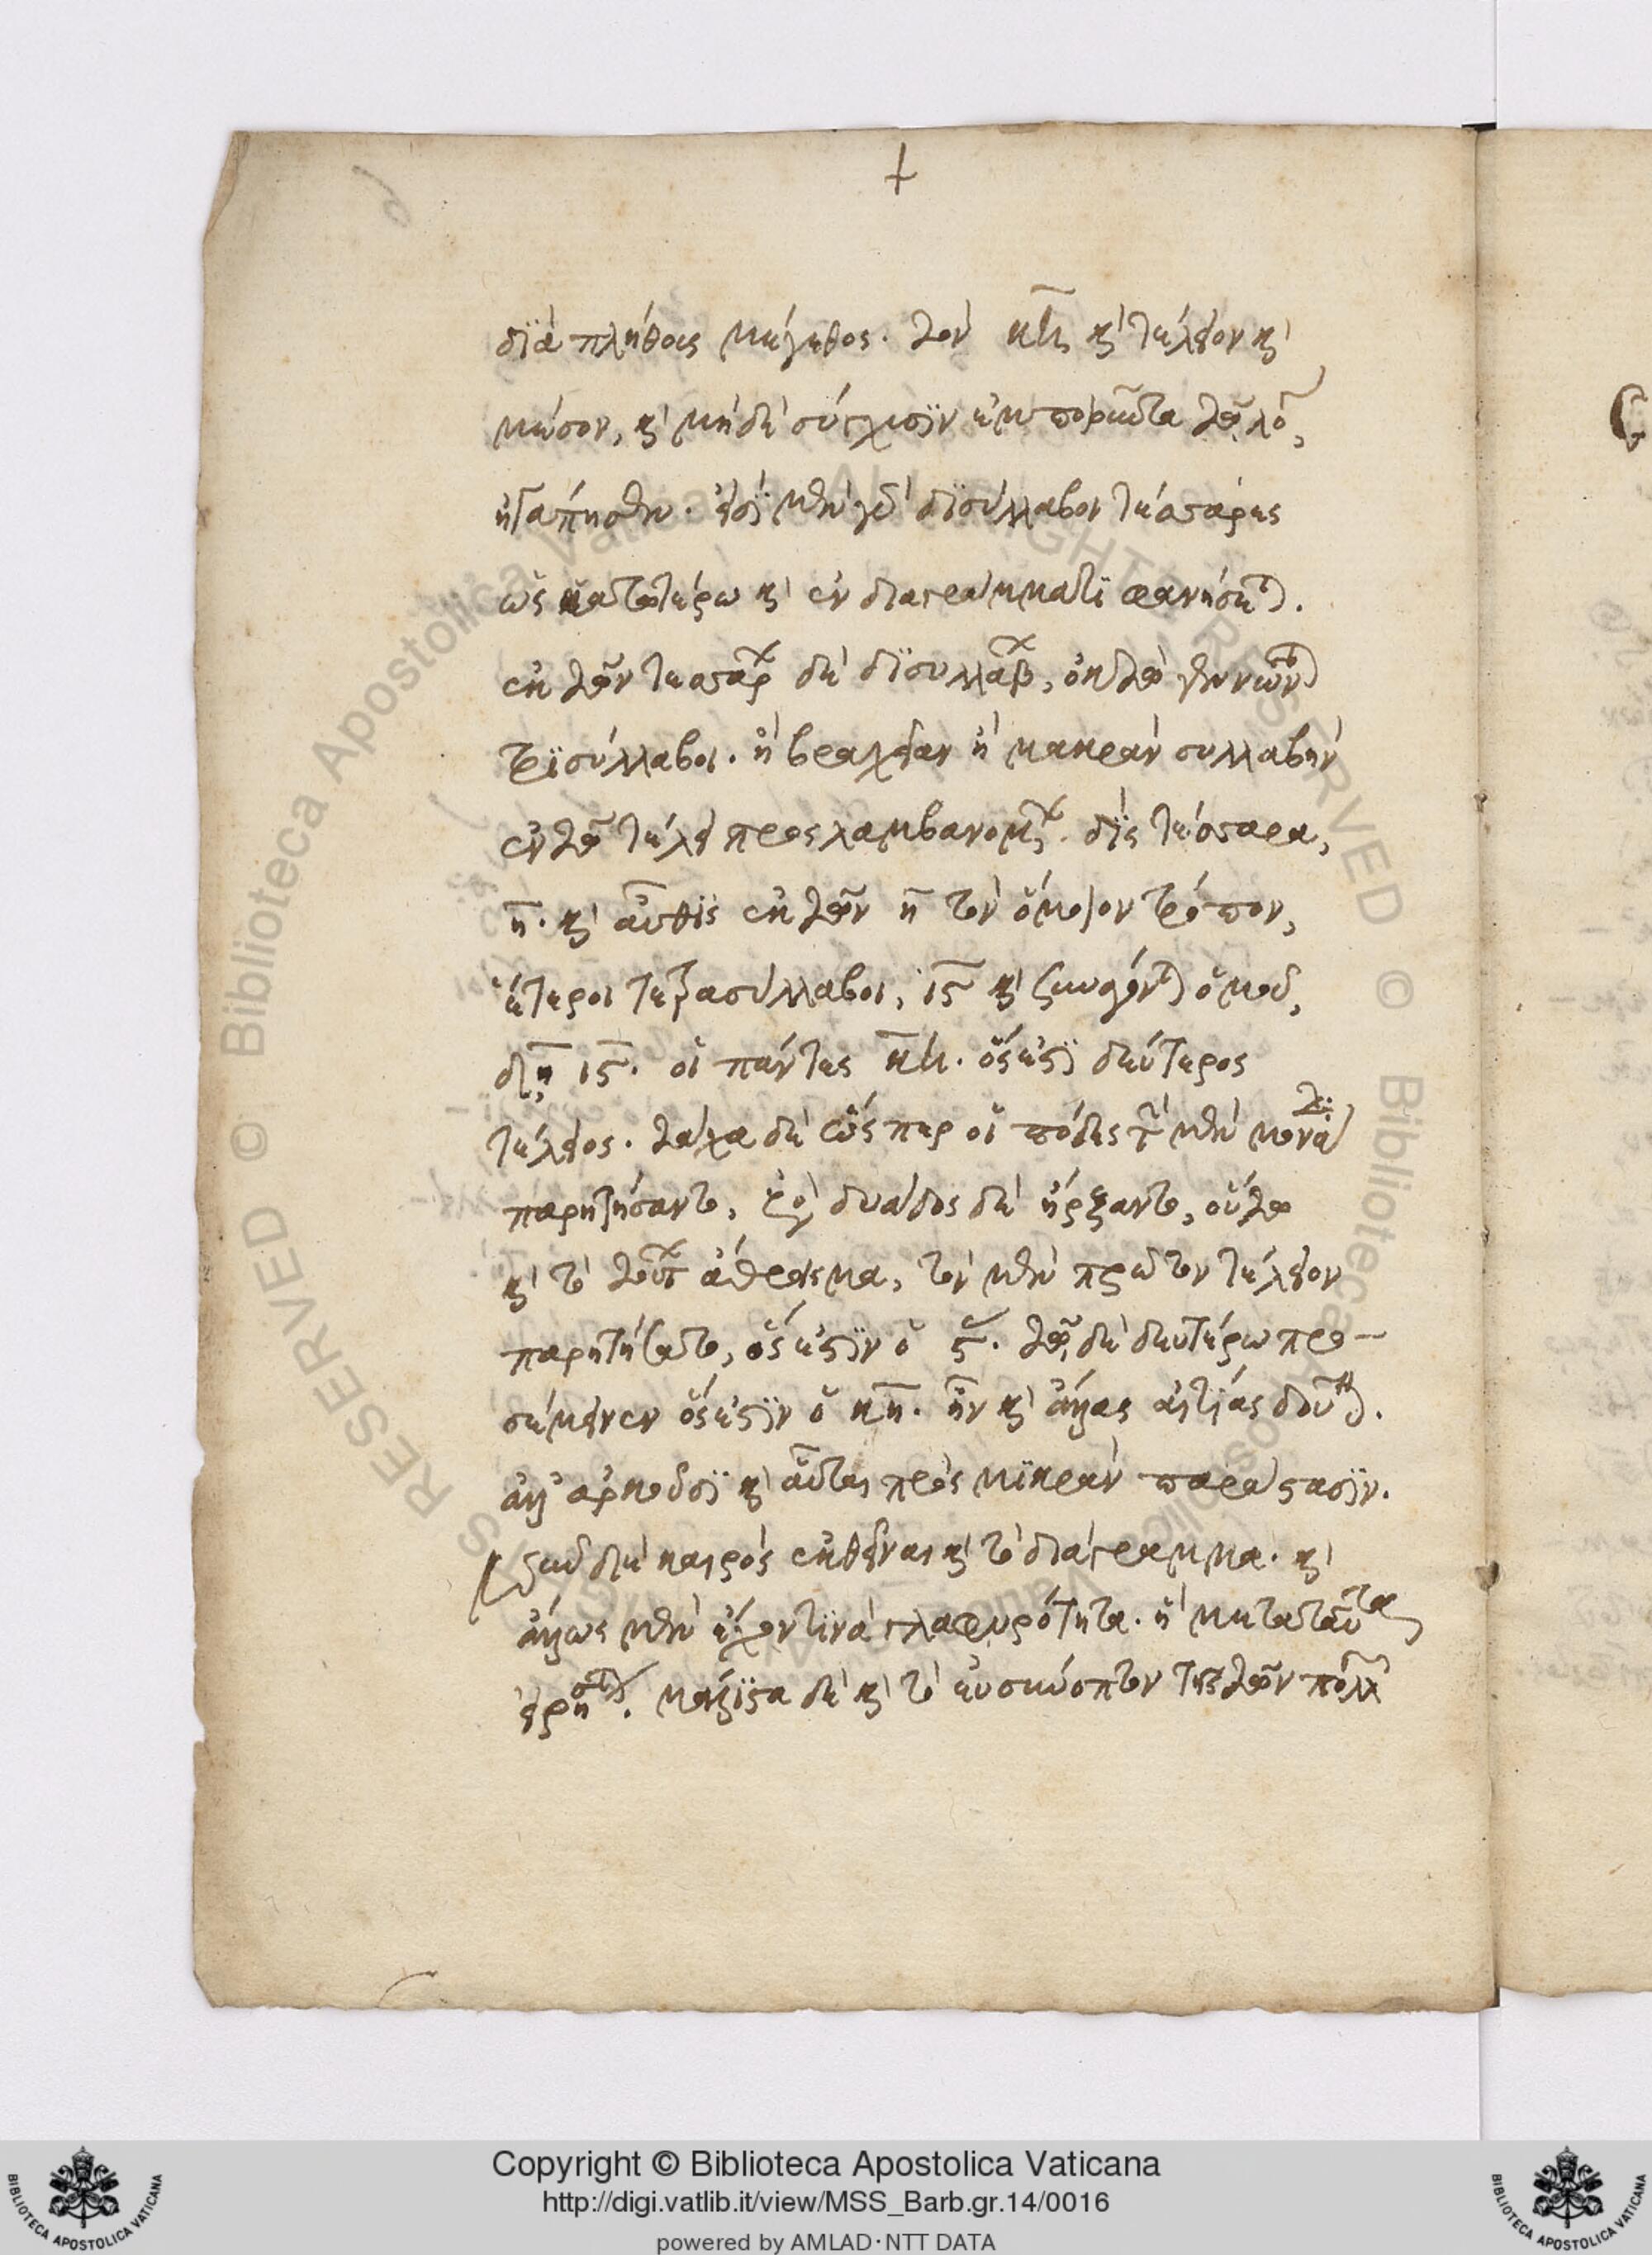 διὰ πλήθους μέγεθος. τὸν κη ὡς καὶ τέλειον καὶ
μέσον, καὶ μηδὲ σύγχισιν ἐμποιοῦντα τῷ λό,
ἠγαπήσθη. εἰσὶ μὲν γὰρ δισύλλαβοι τέσσαρες
ὡς κατωτέρω καὶ ἐν διαγράμματι φανήσεται.
ἐκ τῶν τεσσάρ δὲ δισυλλάβ, ὀκτὼ γεννῶνται
τρισύλλαβοι. ἢ βραχεῖαν ἢ μακρὰν συλλαβὴν
ἐν τῷ τέλει προσλαμβανομεν. δὶς τέσσαρα,
η. καὶ αὖθις ἐκ τῶν η τὸν ὅμοιον τρόπον,
ἕτεροι τετρασύλλαβοι, ις καὶ ὁμοῦ,
δ, η, ις. οἱ πάντες κη. ὅς ἐστι δεύτερος
τέλειος. τάχα δὲ ὥσπερ οἱ πόδες τὴν μὲν μονάδα
παρῃτήσαντο, ἀπὸ δυάδος δὲ ἤρξαντο, οὕτω
καὶ τὸ τούτων ἄθροισμα, τὸν μὲν πρῶτον τέλειον
παρῃτήσατο, ὅς ἐστιν ὁ ς. τῷ δὲ δευτέρω προ-
σέμεινεν ὅς ἐστιν ὁ κη. ἦν καὶ ἄλλας αἰτίας δοῦναι.
ἀλλ' ἀρκοῦσι καὶ αὗται πρὸς μικρὰν παράστασιν.
δὲ καιρὸς ἐκθεῖναι καὶ τὸ διάγραμμα. καὶ
ἄλλως μὲν ἔχον τινὰ γλαφυρότητα. ἢ μετὰ ταῦτα
εἰρήσεται. μάλιστα δὲ καὶ τὸ εὐσύνοπτον τῆς τῶν πολλ
Copyright © Biblioteca Apostolica Vaticana
http://digi.vatlib.it/view/MSS_Barb.gr.14/0016
powered by AMLAD·NTT DATA